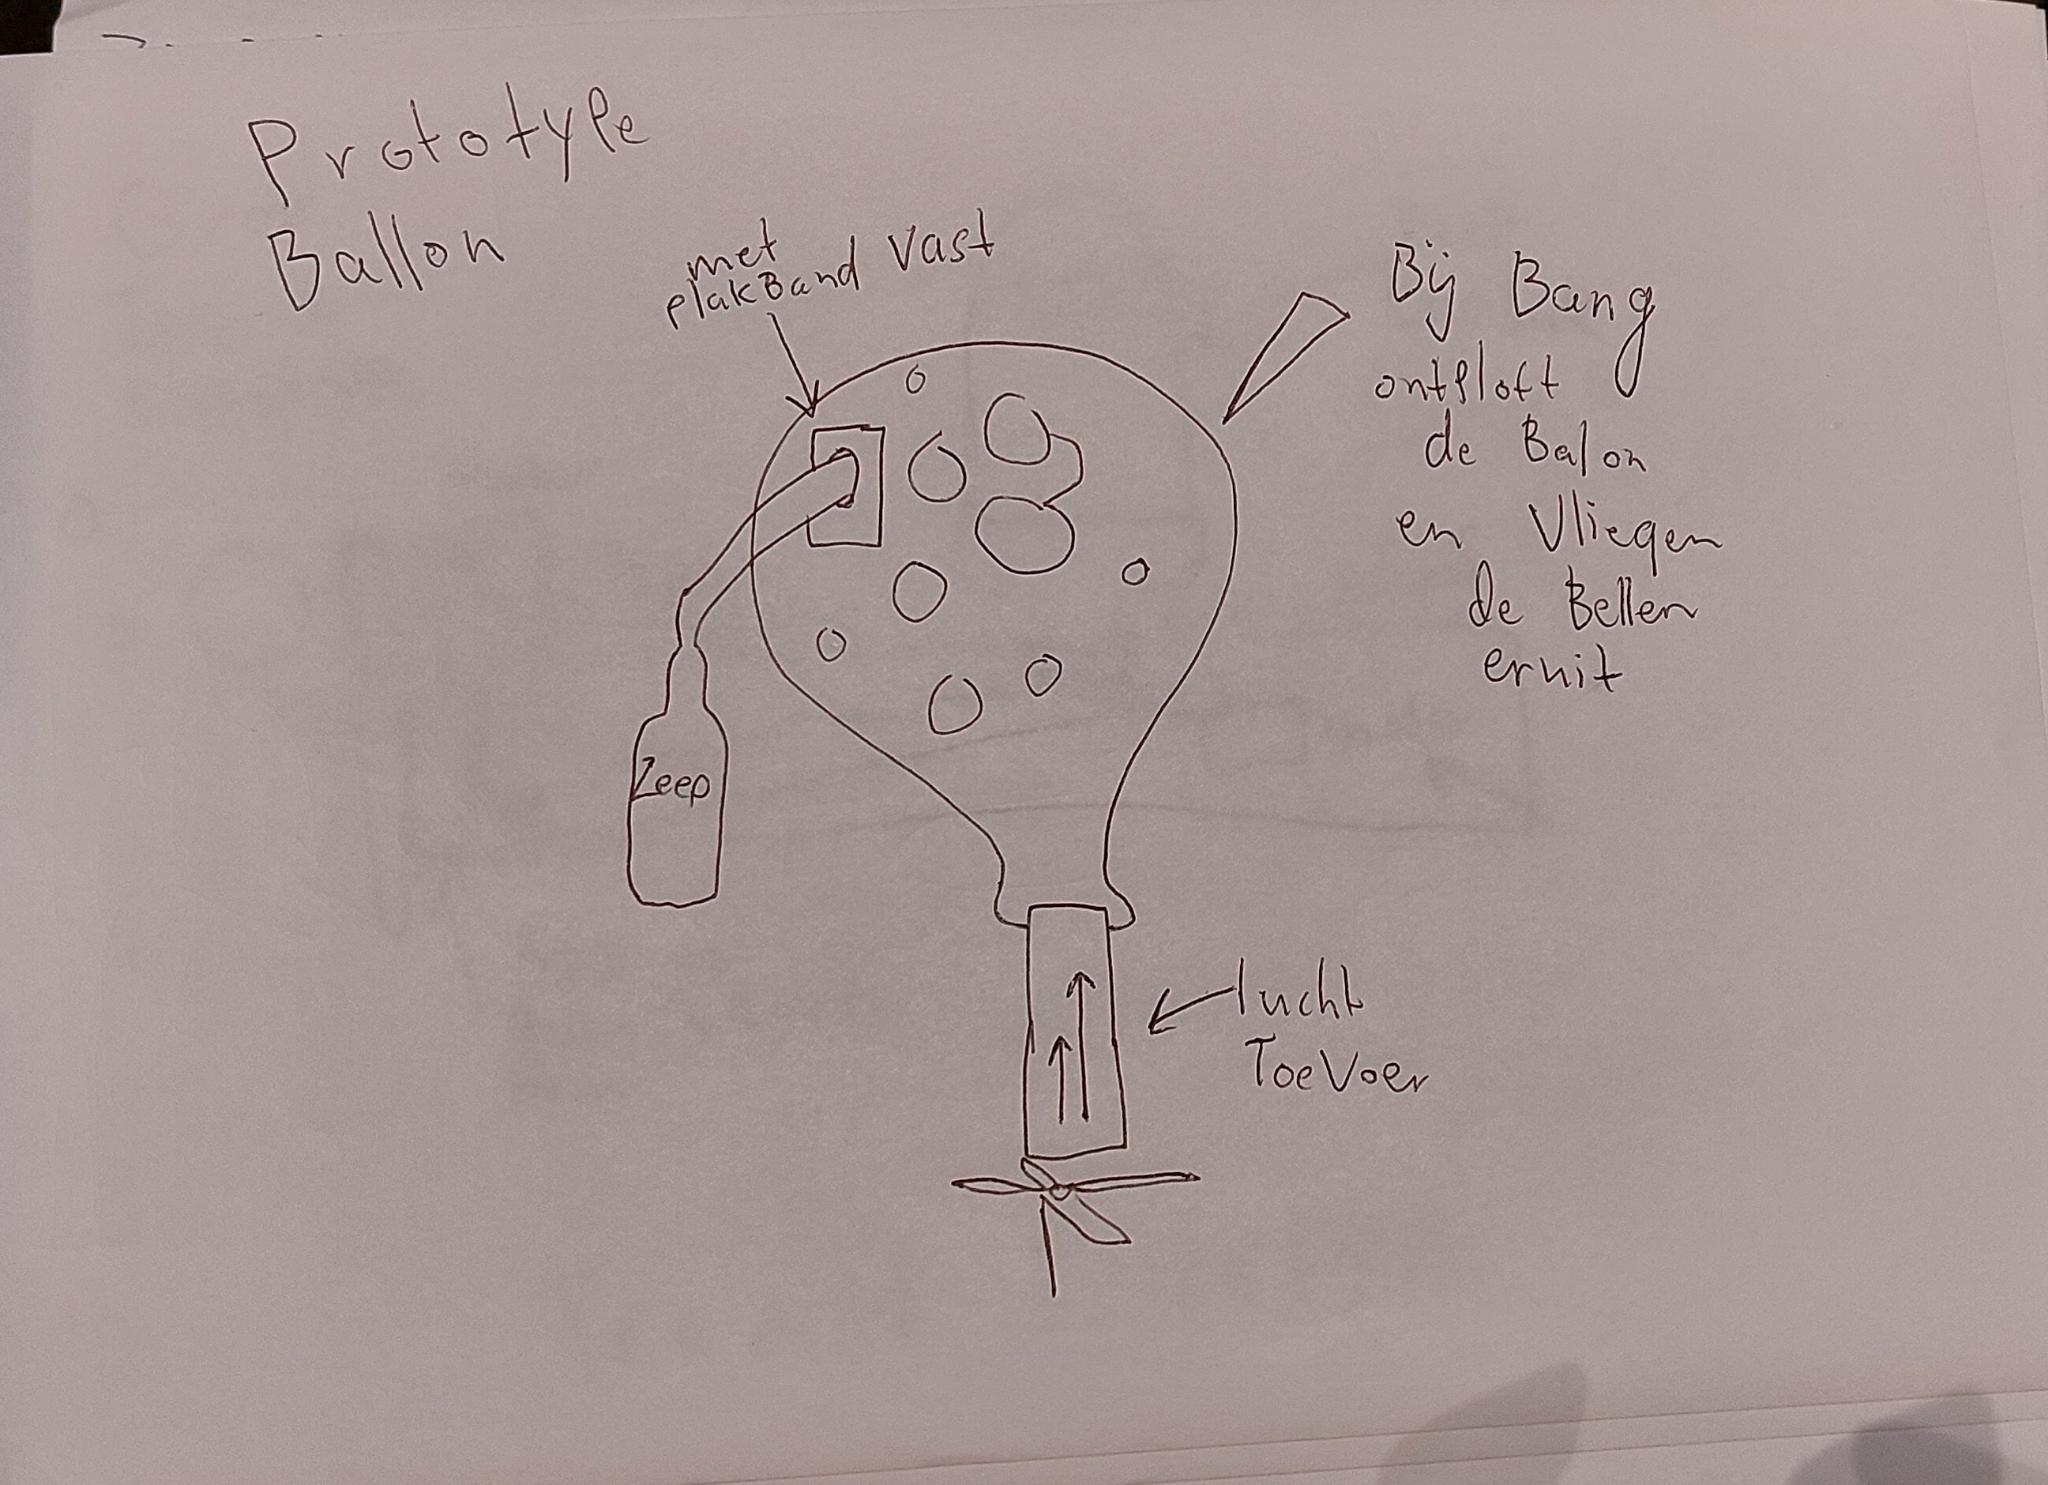 Prototype
Ballon
met
plakBand vast
Bij Bang
ontploft
de Balon
en Vliegen
de Bellen
eruit
Zeep
lucht
ToeVoer